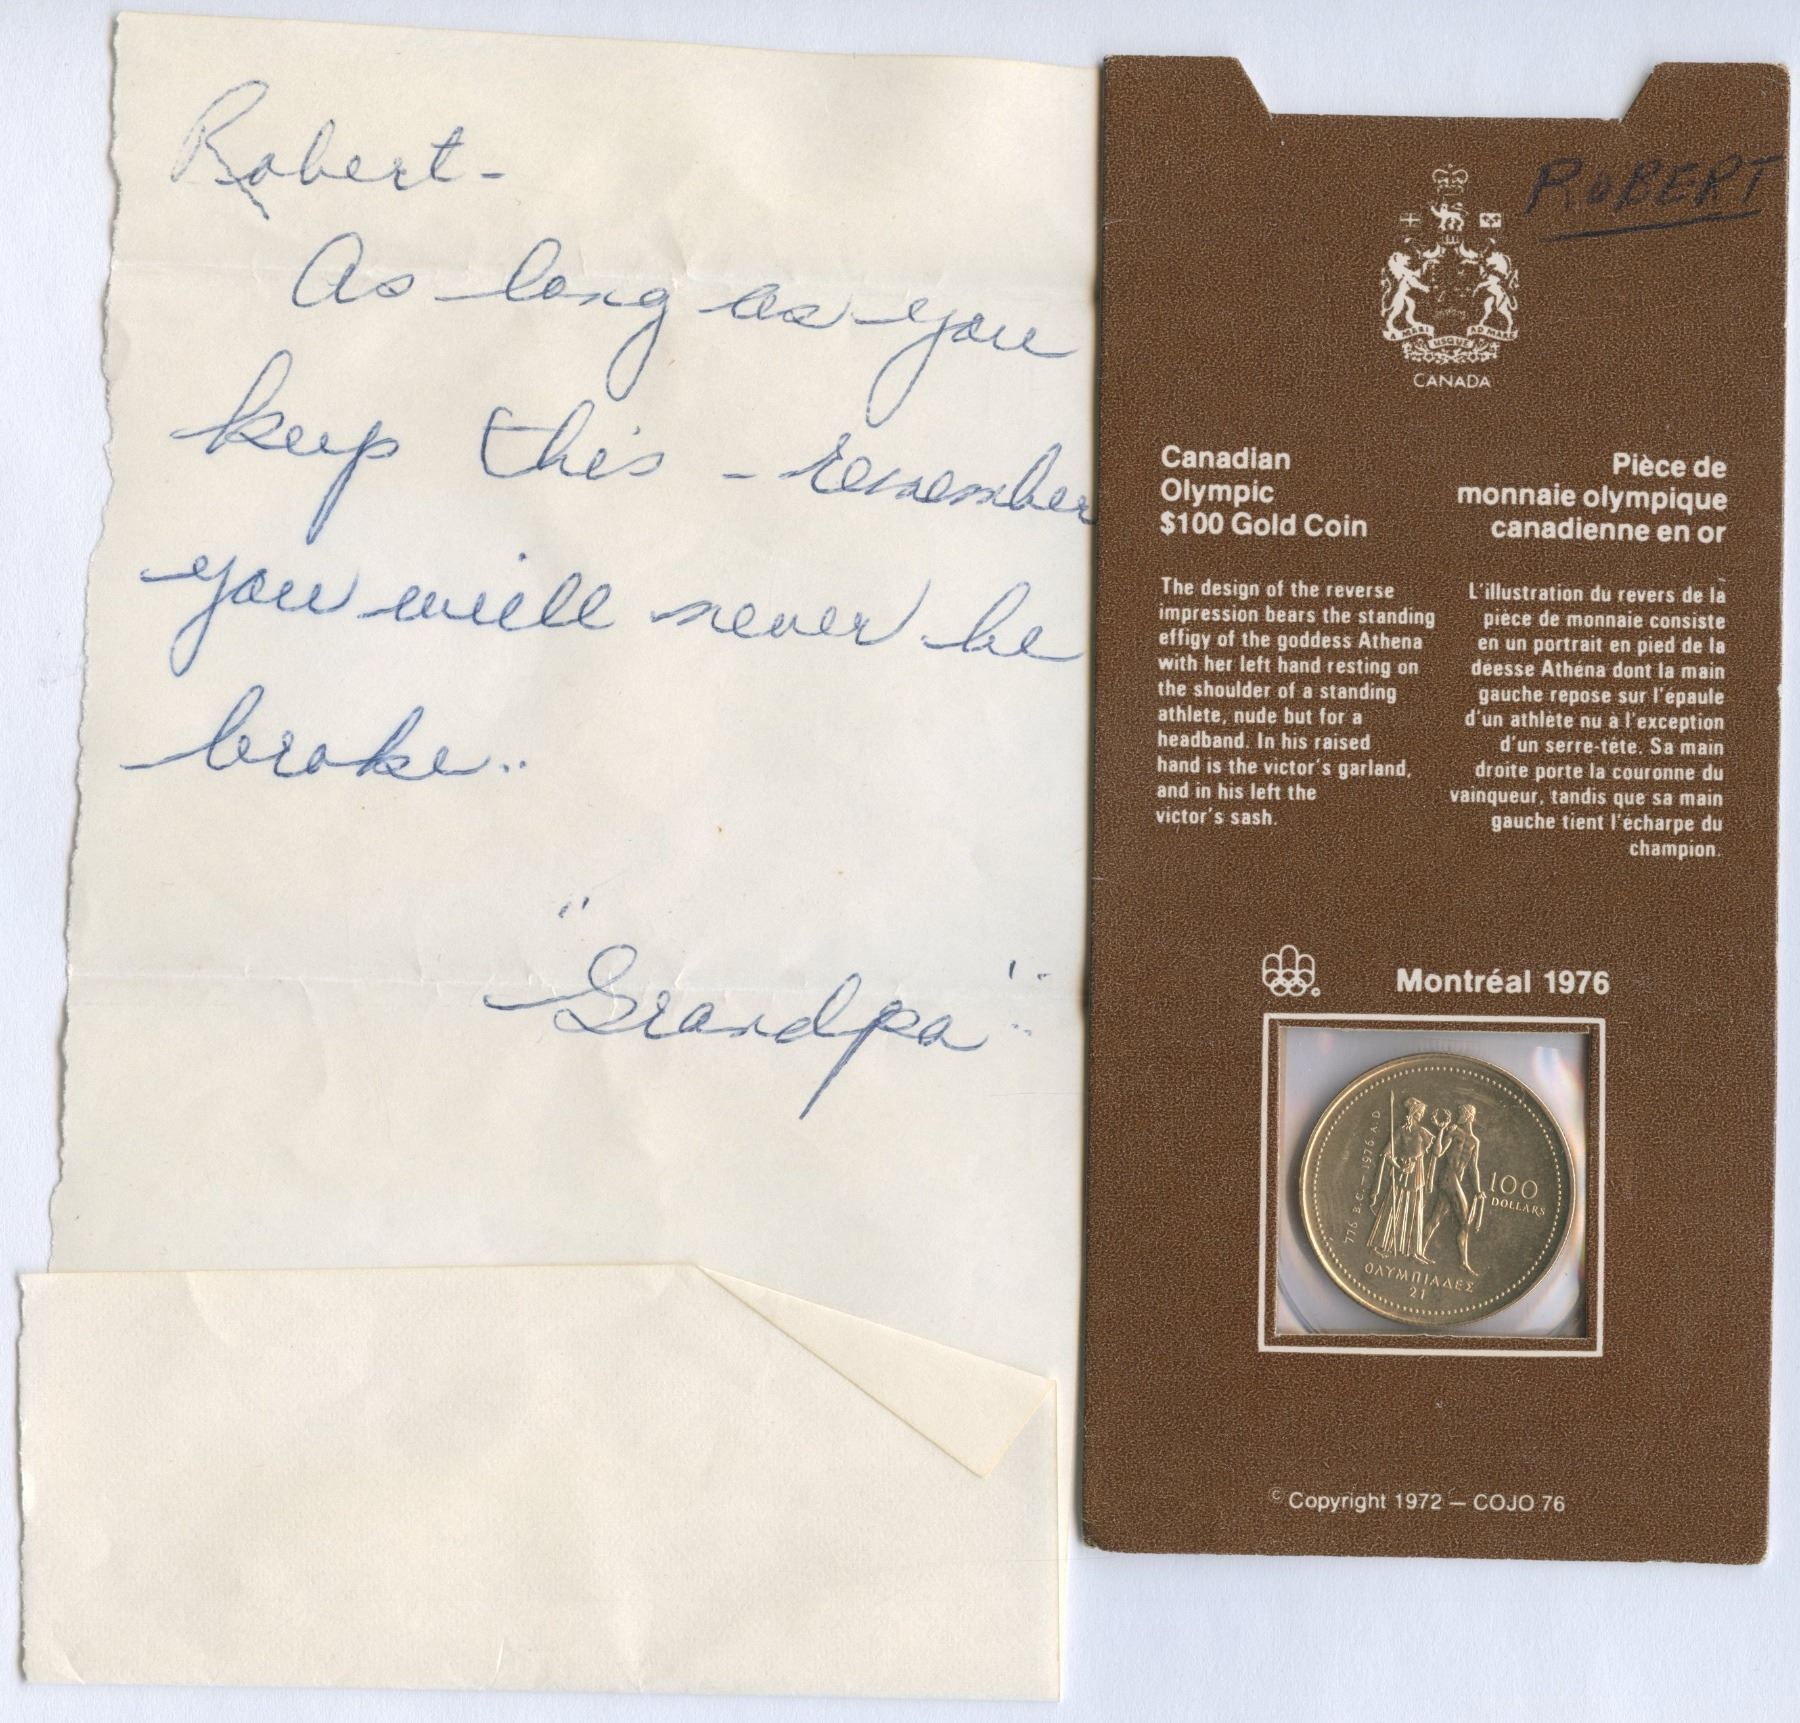 Robert-
As long as you
keep this - remember
you will never be
broke..
"Grandpa"
ROBERT
A MARI USQUE AD MARE
CANADA
Canadian
Olympic
$100 Gold Coin
The design of the reverse
impression bears the standing
effigy of the goddess Athena
with her left hand resting on
the shoulder of a standing
athlete, nude but for a
headband. In his raised
hand is the victor's garland,
and in his left the
victor's sash.
Pièce de
monnaie olympique
canadienne en or
L'illustration du revers de la
pièce de monnaie consiste
en un portrait en pied de la
déesse Athéna dont la main
gauche repose sur l'épaule
d'un athlète nu à l'exception
d'un serre-tête. Sa main
droite porte la couronne du
vainqueur, tandis que sa main
gauche tient l'écharpe du
champion.
Montréal 1976
776 B.C.-1976 A.D
100
DOLLARS
ΟΛΥΜΠΙΑΔΕΣ
21
© Copyright 1972 — COJO 76